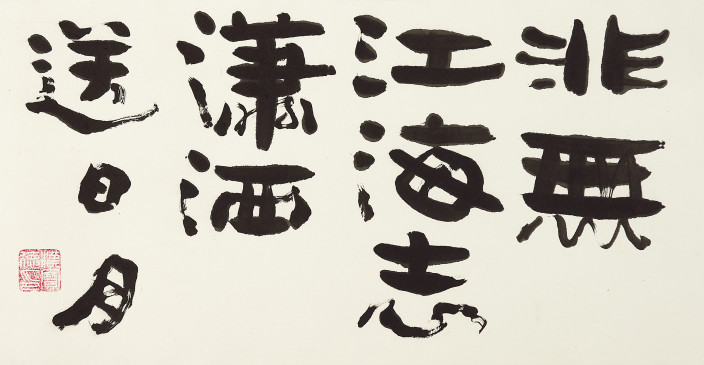 非無
江海志
瀟洒
送日月